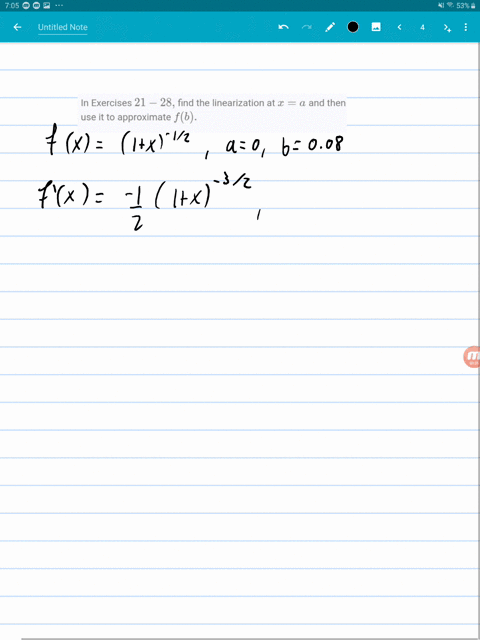 7:05 ... 53%
Untitled Note 4
In Exercises 21 − 28, find the linearization at x = a and then
use it to approximate f(b).
f(x) = (1+x)^-1/2, a=0, b=0.08
f'(x) = -1/2 (1+x)^-3/2,